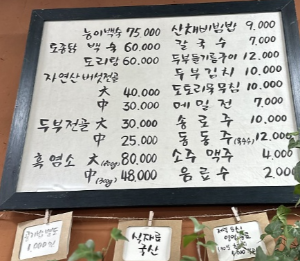 능이백숙 75,000
토종닭 백숙 60,000
도리탕 60,000
자연산버섯전골
大 40,000
中 30,000
두부전골 大 30,000
中 25,000
흑염소 大 80,000
中 48,000
산채비빔밥 9,000
칼국수 7,000
두부들기름구이 12,000
두부김치 10,000
도토리묵무침 10,000
메밀전 7,000
송로주 10,000
동동주 12,000
소주 맥주 4,000
음료수 2,000
1,000원
식자료
국산